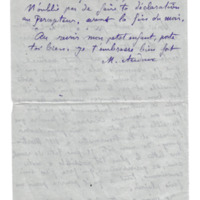 N'oublie pas de faire ta déclaration
au percepteur, avant la fin du mois.
Au revoir mon petit enfant, porte
toi bien. Je t'embrasse bien fort
M.